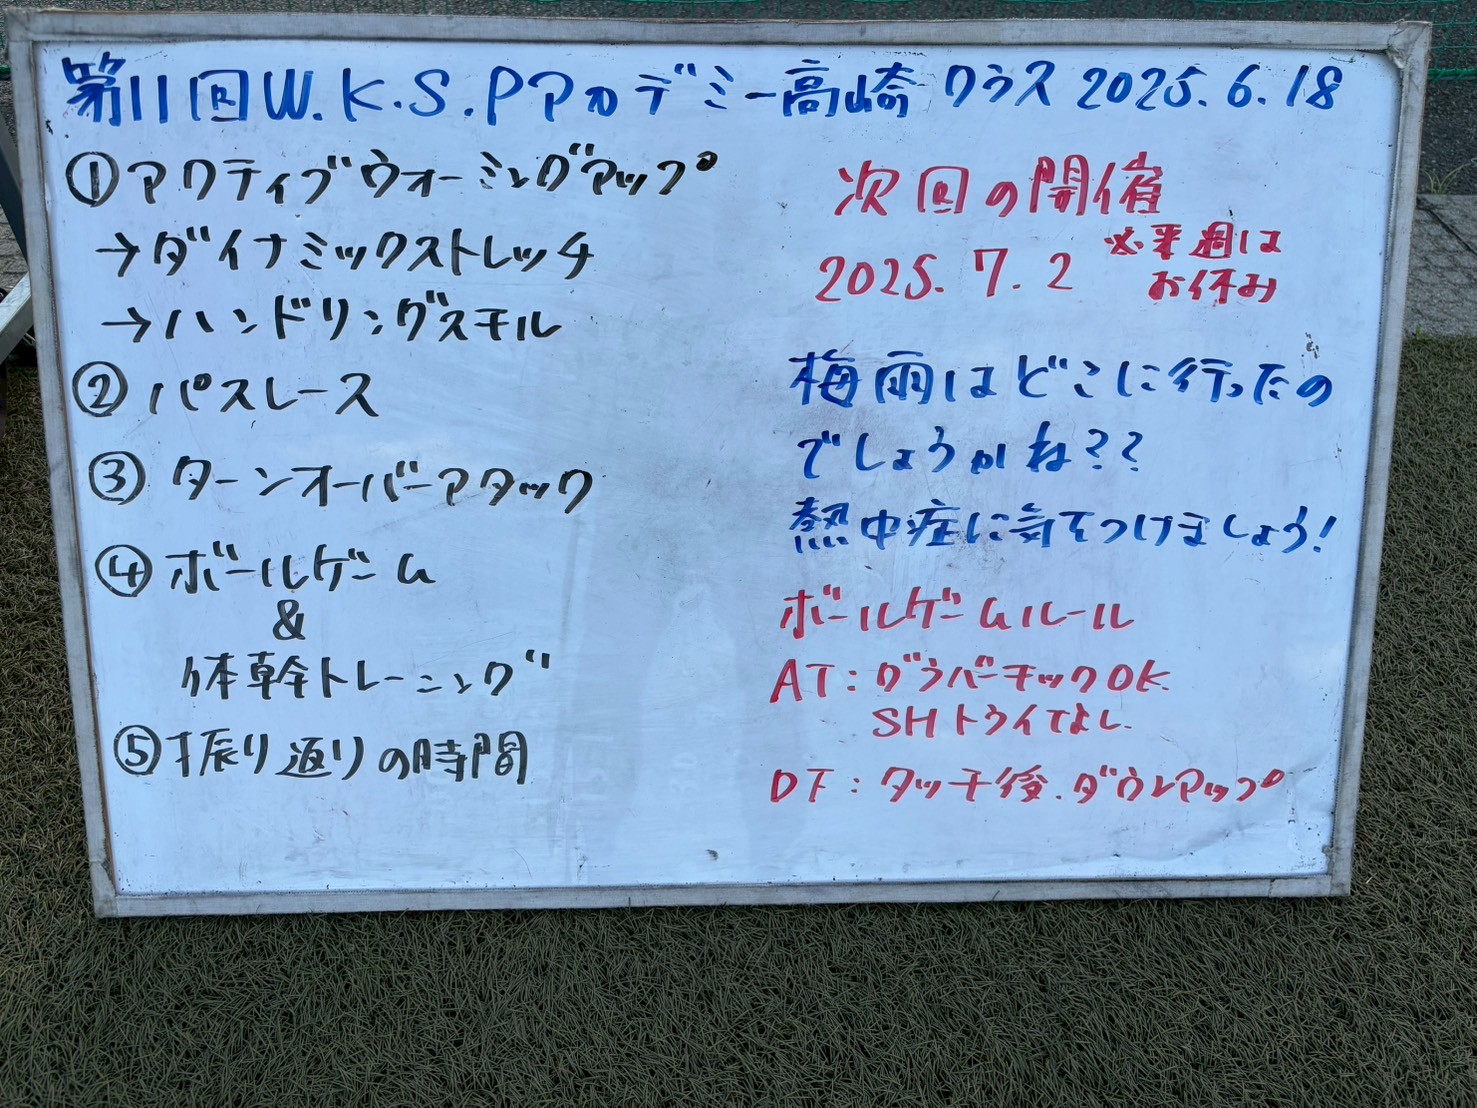 第11回W.K.S.Pアカデミー高崎クラス 2025.6.18
①アクティブウォーミングアップ
→ダイナミックストレッチ
→ハンドリングスキル
②パスレース
③ターンオーバーアタック
④ボールゲーム
&
体幹トレーニング
⑤振り返りの時間
次回の開催
2025.7.2 ※来週は
お休み
梅雨はどこに行ったの
でしょうかね??
熱中症に気をつけましょう!
ボールゲームルール
AT:グラバーキックOK
SHトライてよし.
DF:タッチ後.ダウンアップ